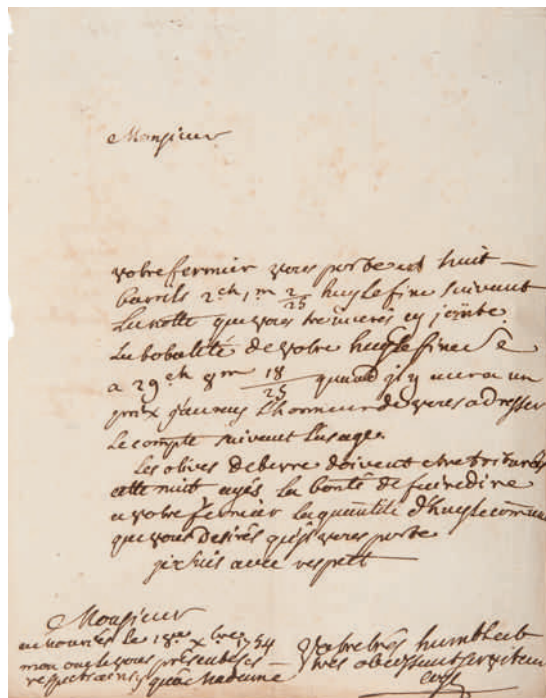 Monsieur
votre fermier vous porte huit
barrils 2 ch 1 m 2/25 huyle fine suivant
la notte que vous trouverés cy jointe
La totalité de votre huyle fine
a 29 ch 8 m 18/25 quand il y aura un
prix j'auray l'honneur de vous adresser
le compte suivant l'usage.
Les olives de berre doivent etre triturés
cette nuit ayés la bonté de faire dire
a votre fermier la quantité d'huyle comune
que vous desirés qu'il vous porte
je suis avec respect
Monsieur
le 18 xbre 1754
mon oncle vous présente ses
respects ainsy qu'a Madame
Votre très humble et
tres obeissant serviteur